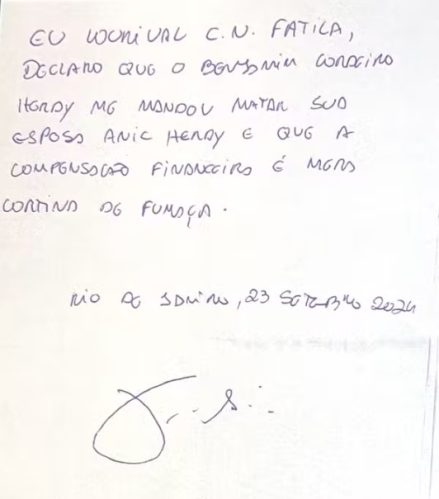 EU LOURIVAL C.N. FATICA,
DECLARO QUE O BENJAMIM CORDEIRO
HERDY ME MANDOU MATAR SUA
ESPOSA ANIC HERDY E QUE A
COMPENSAÇÃO FINANCEIRA É MERA
CORTINA DE FUMAÇA.
RIO DE JANEIRO, 23 SETEMBRO 2024